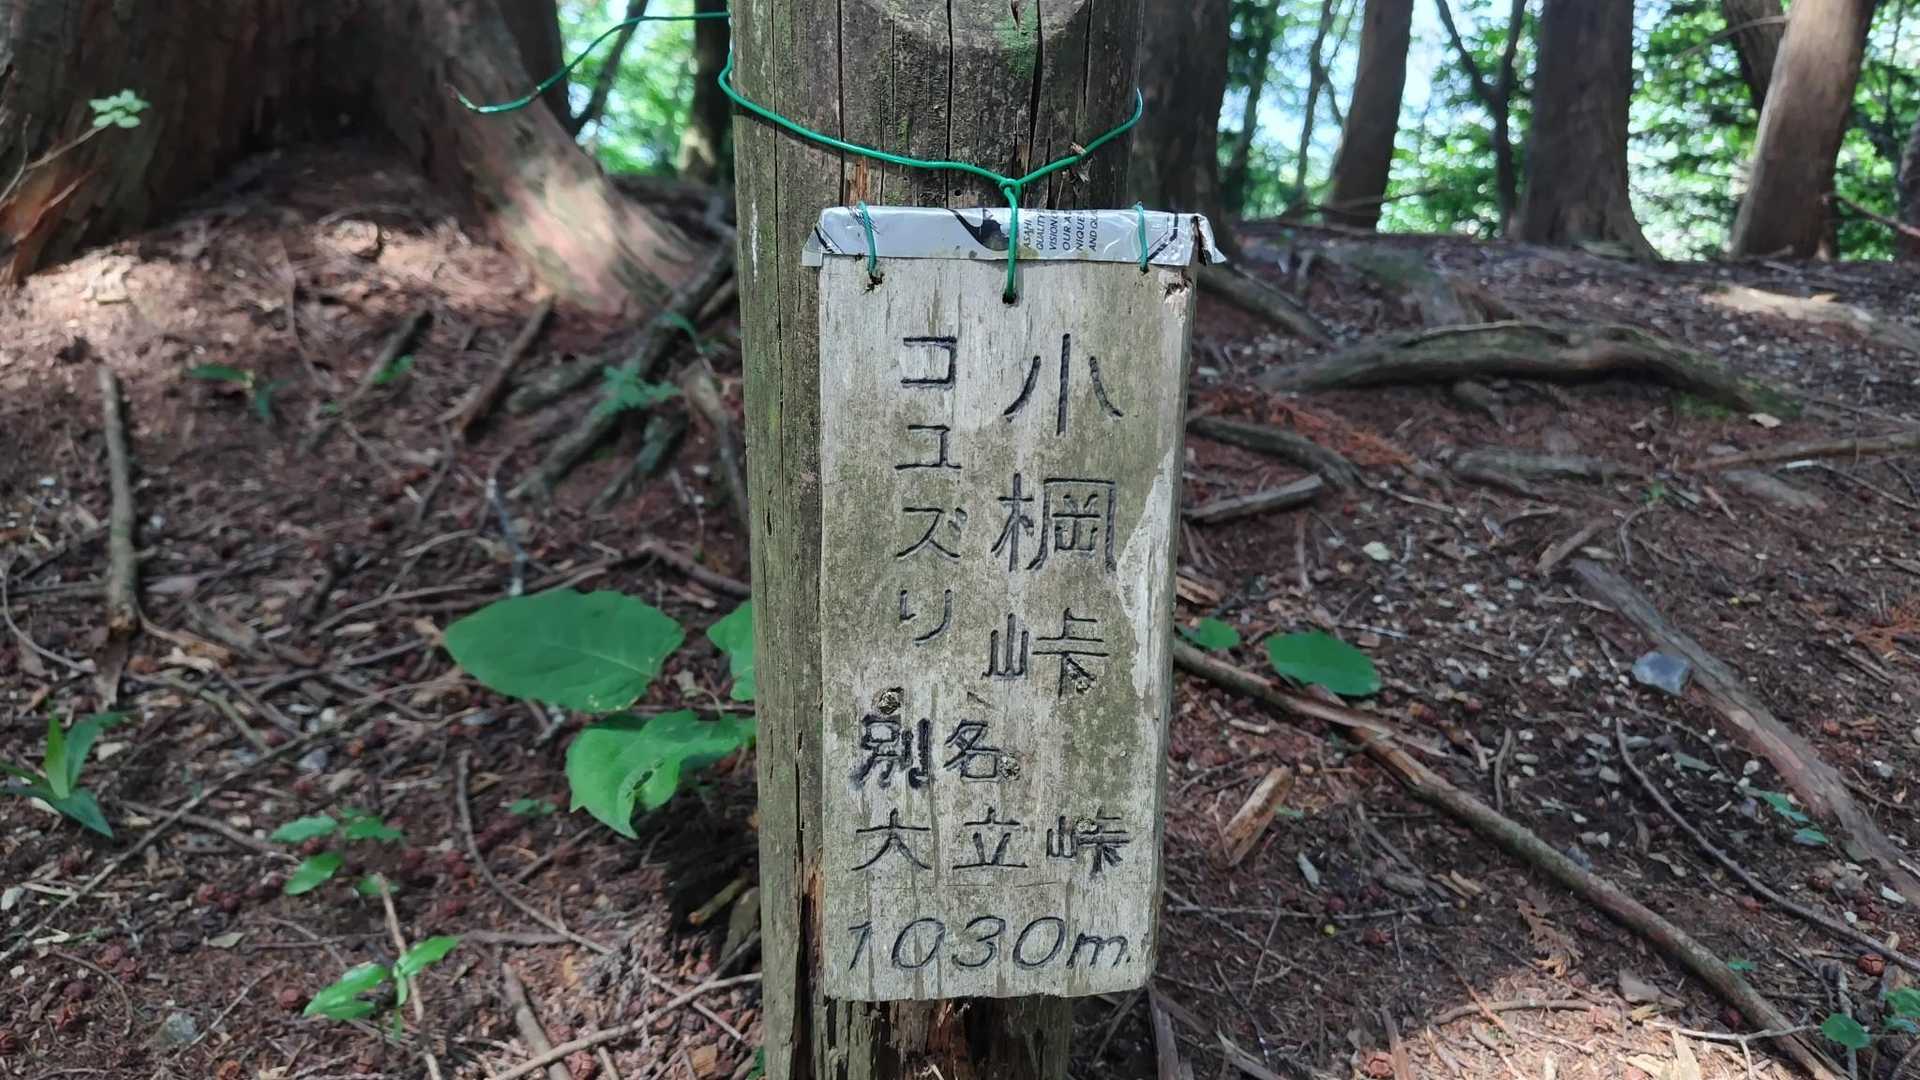 小棡峠
コユズリ
別名
大立峠
1030m.
QUALITY
VISION
OUR